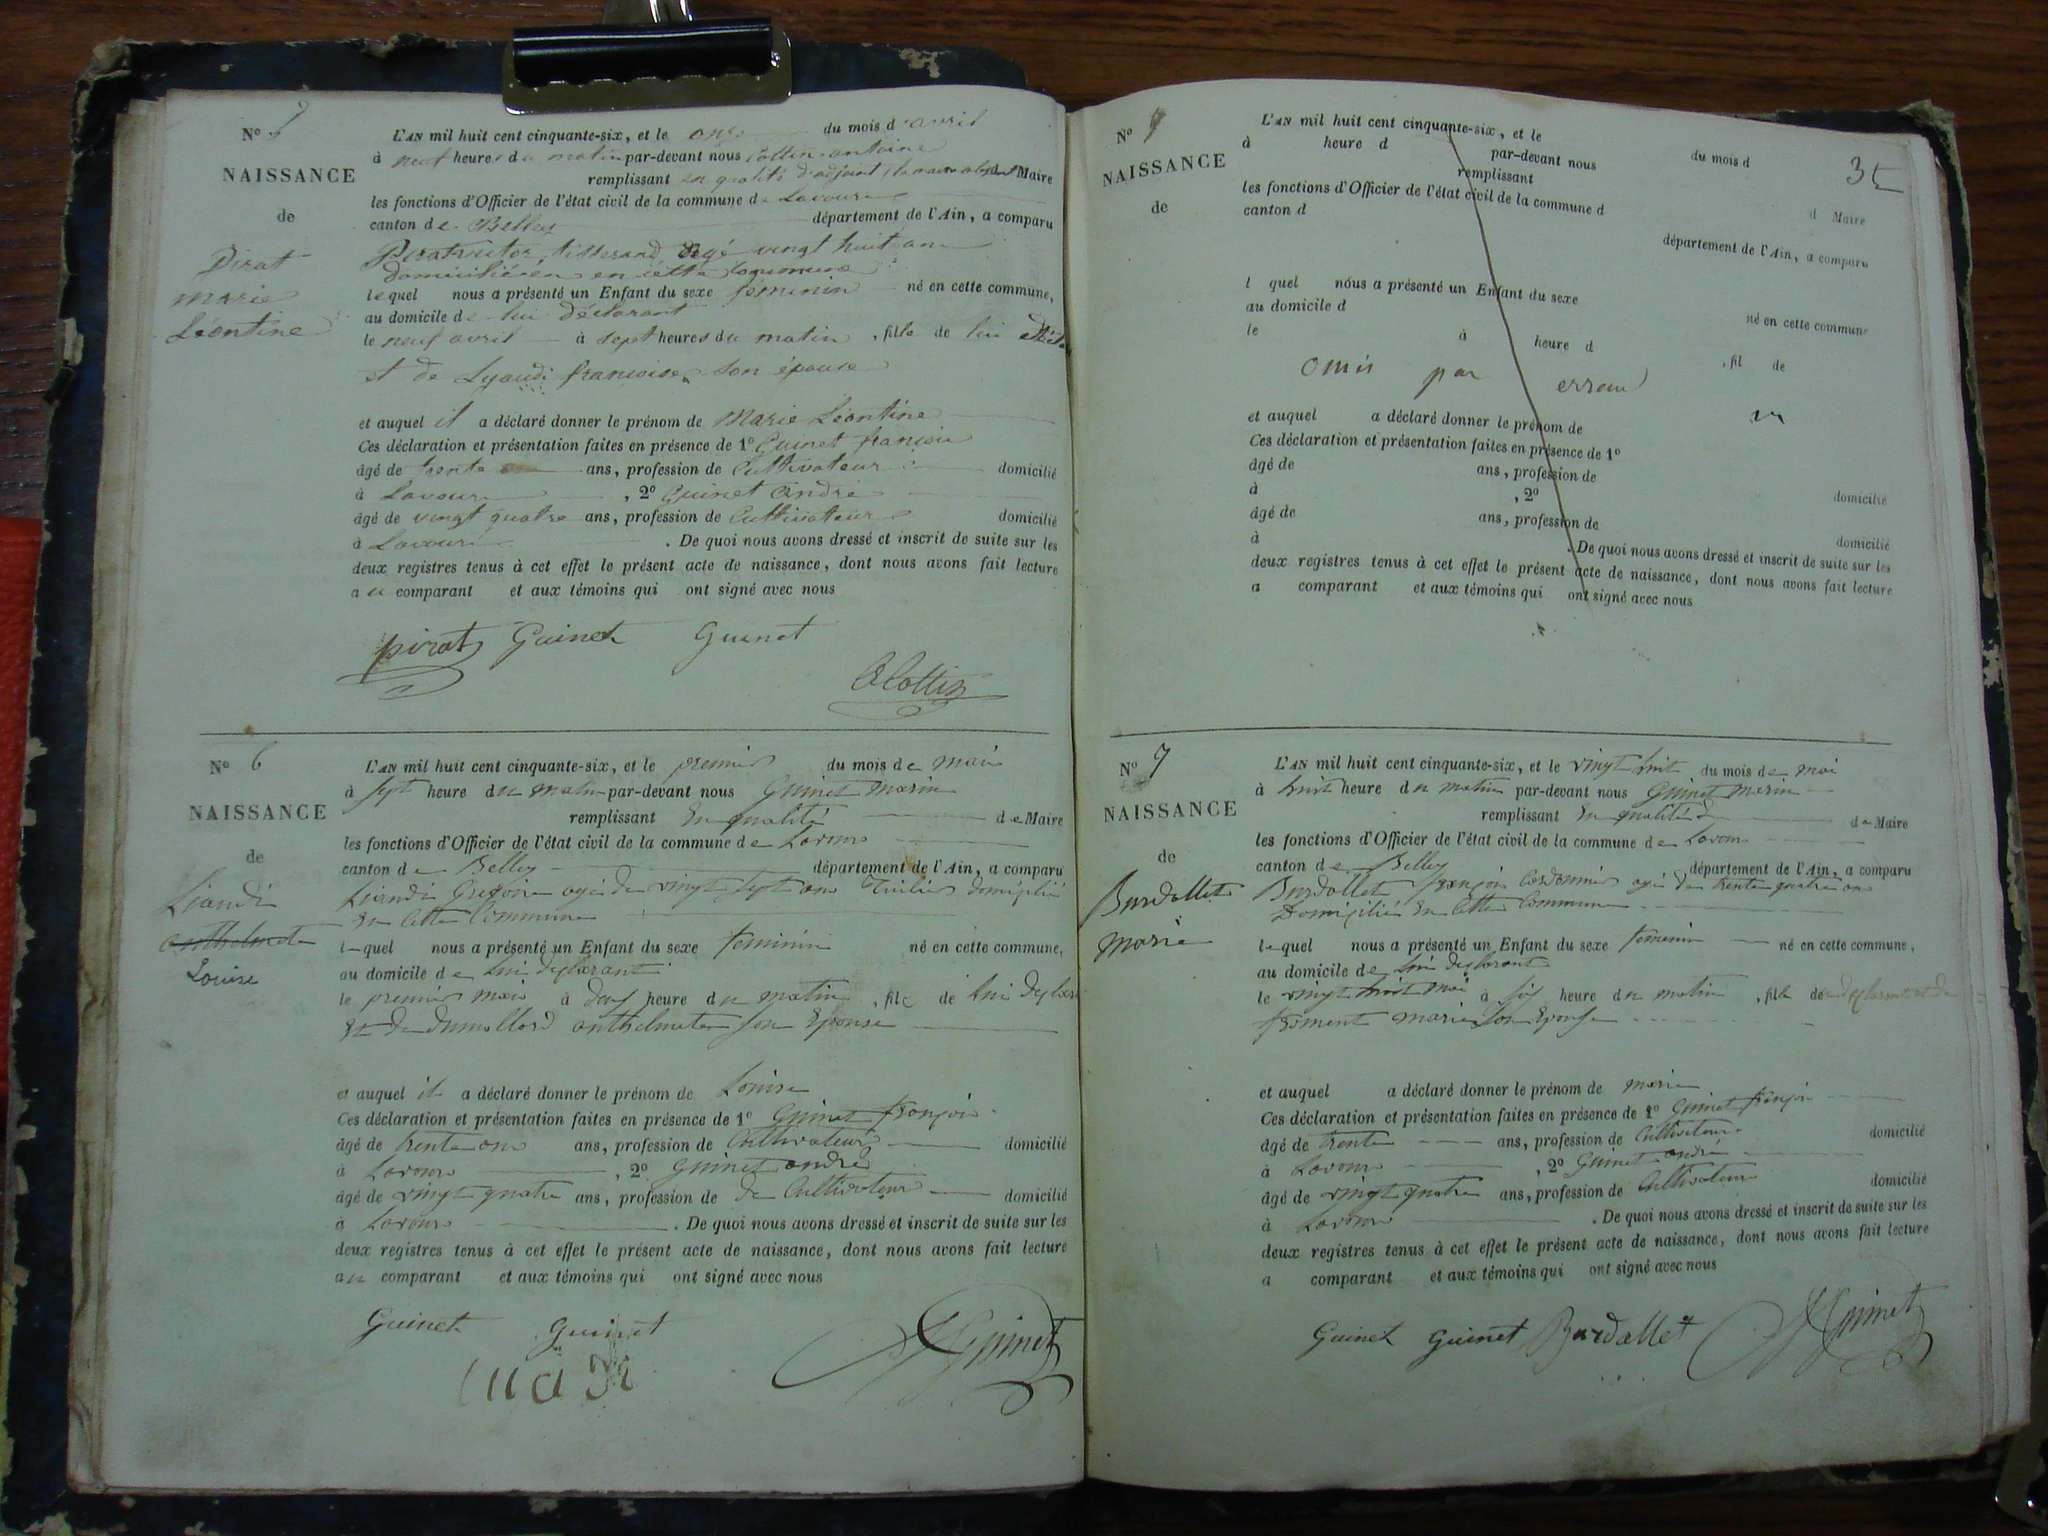 N° 5
NAISSANCE
de
Pirat
marie
Léontine
L'AN mil huit cent cinquante-six, et le onze du mois d'avril
à neuf heures du matin par-devant nous Cottin antoine
remplissant en qualité d'adjoint, le maire absent Maire
les fonctions d'Officier de l'état civil de la commune de Lavours
canton de Belley département de l'Ain, a comparu
Pirat victor, tisserand, âgé vingt huit ans
domicilié en cette commune
lequel nous a présenté un Enfant du sexe feminin né en cette commune,
au domicile de lui déclarant
le neuf avril à sept heures du matin, fille de lui
et de Lyaudi francoise son épouse
et auquel il a déclaré donner le prénom de Marie Léontine
Ces déclaration et présentation faites en présence de 1° Guinet francois
âgé de trente ans, profession de Cultivateur domicilié
à Lavours, 2° Guinet andré
âgé de vingt quatre ans, profession de Cultivateur domicilié
à Lavours. De quoi nous avons dressé et inscrit de suite sur les
deux registres tenus à cet effet le présent acte de naissance, dont nous avons fait lecture
au comparant et aux témoins qui ont signé avec nous
pirat Guinet Guinet
A Cottin
N° 6
NAISSANCE
de
Liandi
anthelmete
Louise
L'AN mil huit cent cinquante-six, et le premier du mois de mai
à sept heure du matin par-devant nous Guinet marin
remplissant en qualité de Maire
les fonctions d'Officier de l'état civil de la commune de Lavours
canton de Belley département de l'Ain, a comparu
Liandi Gregoire agé de vingt sept ans Tuilier domicilié
en cette Commune
lequel nous a présenté un Enfant du sexe feminin né en cette commune,
au domicile de lui declarant
le premier mai à deux heure du matin, fille de lui
et de dumollard anthelmete son Epouse
et auquel il a déclaré donner le prénom de Louise
Ces déclaration et présentation faites en présence de 1° Guinet françois
âgé de trente ans ans, profession de Cultivateur domicilié
à Lavours, 2° Guinet andré
âgé de vingt quatre ans, profession de de Cultivateur domicilié
à Lavours. De quoi nous avons dressé et inscrit de suite sur les
deux registres tenus à cet effet le présent acte de naissance, dont nous avons fait lecture
au comparant et aux témoins qui ont signé avec nous
Guinet Guinet
Guinet
35
N° 7
NAISSANCE
de
L'AN mil huit cent cinquante-six, et le du mois d
à heure d par-devant nous
remplissant d Maire
les fonctions d'Officier de l'état civil de la commune d
canton d département de l'Ain, a comparu
l quel nous a présenté un Enfant du sexe né en cette commune
au domicile d
le à heure d , fil de
omis par erreur
et auquel a déclaré donner le prénom de
Ces déclaration et présentation faites en présence de 1°
âgé de ans, profession de domicilié
à , 2°
âgé de ans, profession de domicilié
à . De quoi nous avons dressé et inscrit de suite sur les
deux registres tenus à cet effet le présent acte de naissance, dont nous avons fait lecture
a comparant et aux témoins qui ont signé avec nous
N° 7
NAISSANCE
de
Burdallet
marie
L'AN mil huit cent cinquante-six, et le vingt huit du mois de mai
à huit heure du matin par-devant nous Guinet marin
remplissant en qualité de Maire
les fonctions d'Officier de l'état civil de la commune de Lavours
canton de Belley département de l'Ain, a comparu
Burdallet françois Cordonnier agé de trente quatre ans
Domicilié en cette Commune
lequel nous a présenté un Enfant du sexe feminin né en cette commune,
au domicile de lui declarant
le vingt huit mai à six heure du matin, fille de declarant et de
froment marie son Epouse
et auquel a déclaré donner le prénom de marie
Ces déclaration et présentation faites en présence de 1° Guinet françois
âgé de trente ans, profession de Cultivateur domicilié
à Lavours, 2° Guinet andré
âgé de vingt quatre ans, profession de Cultivateur domicilié
à Lavours. De quoi nous avons dressé et inscrit de suite sur les
deux registres tenus à cet effet le présent acte de naissance, dont nous avons fait lecture
a comparant et aux témoins qui ont signé avec nous
Guinet Guinet Burdallet Guinet